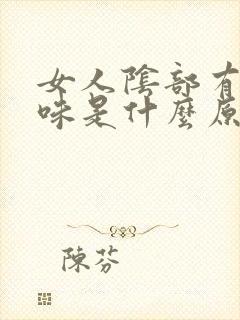 女人陰部有
味是什麼原
陳芬